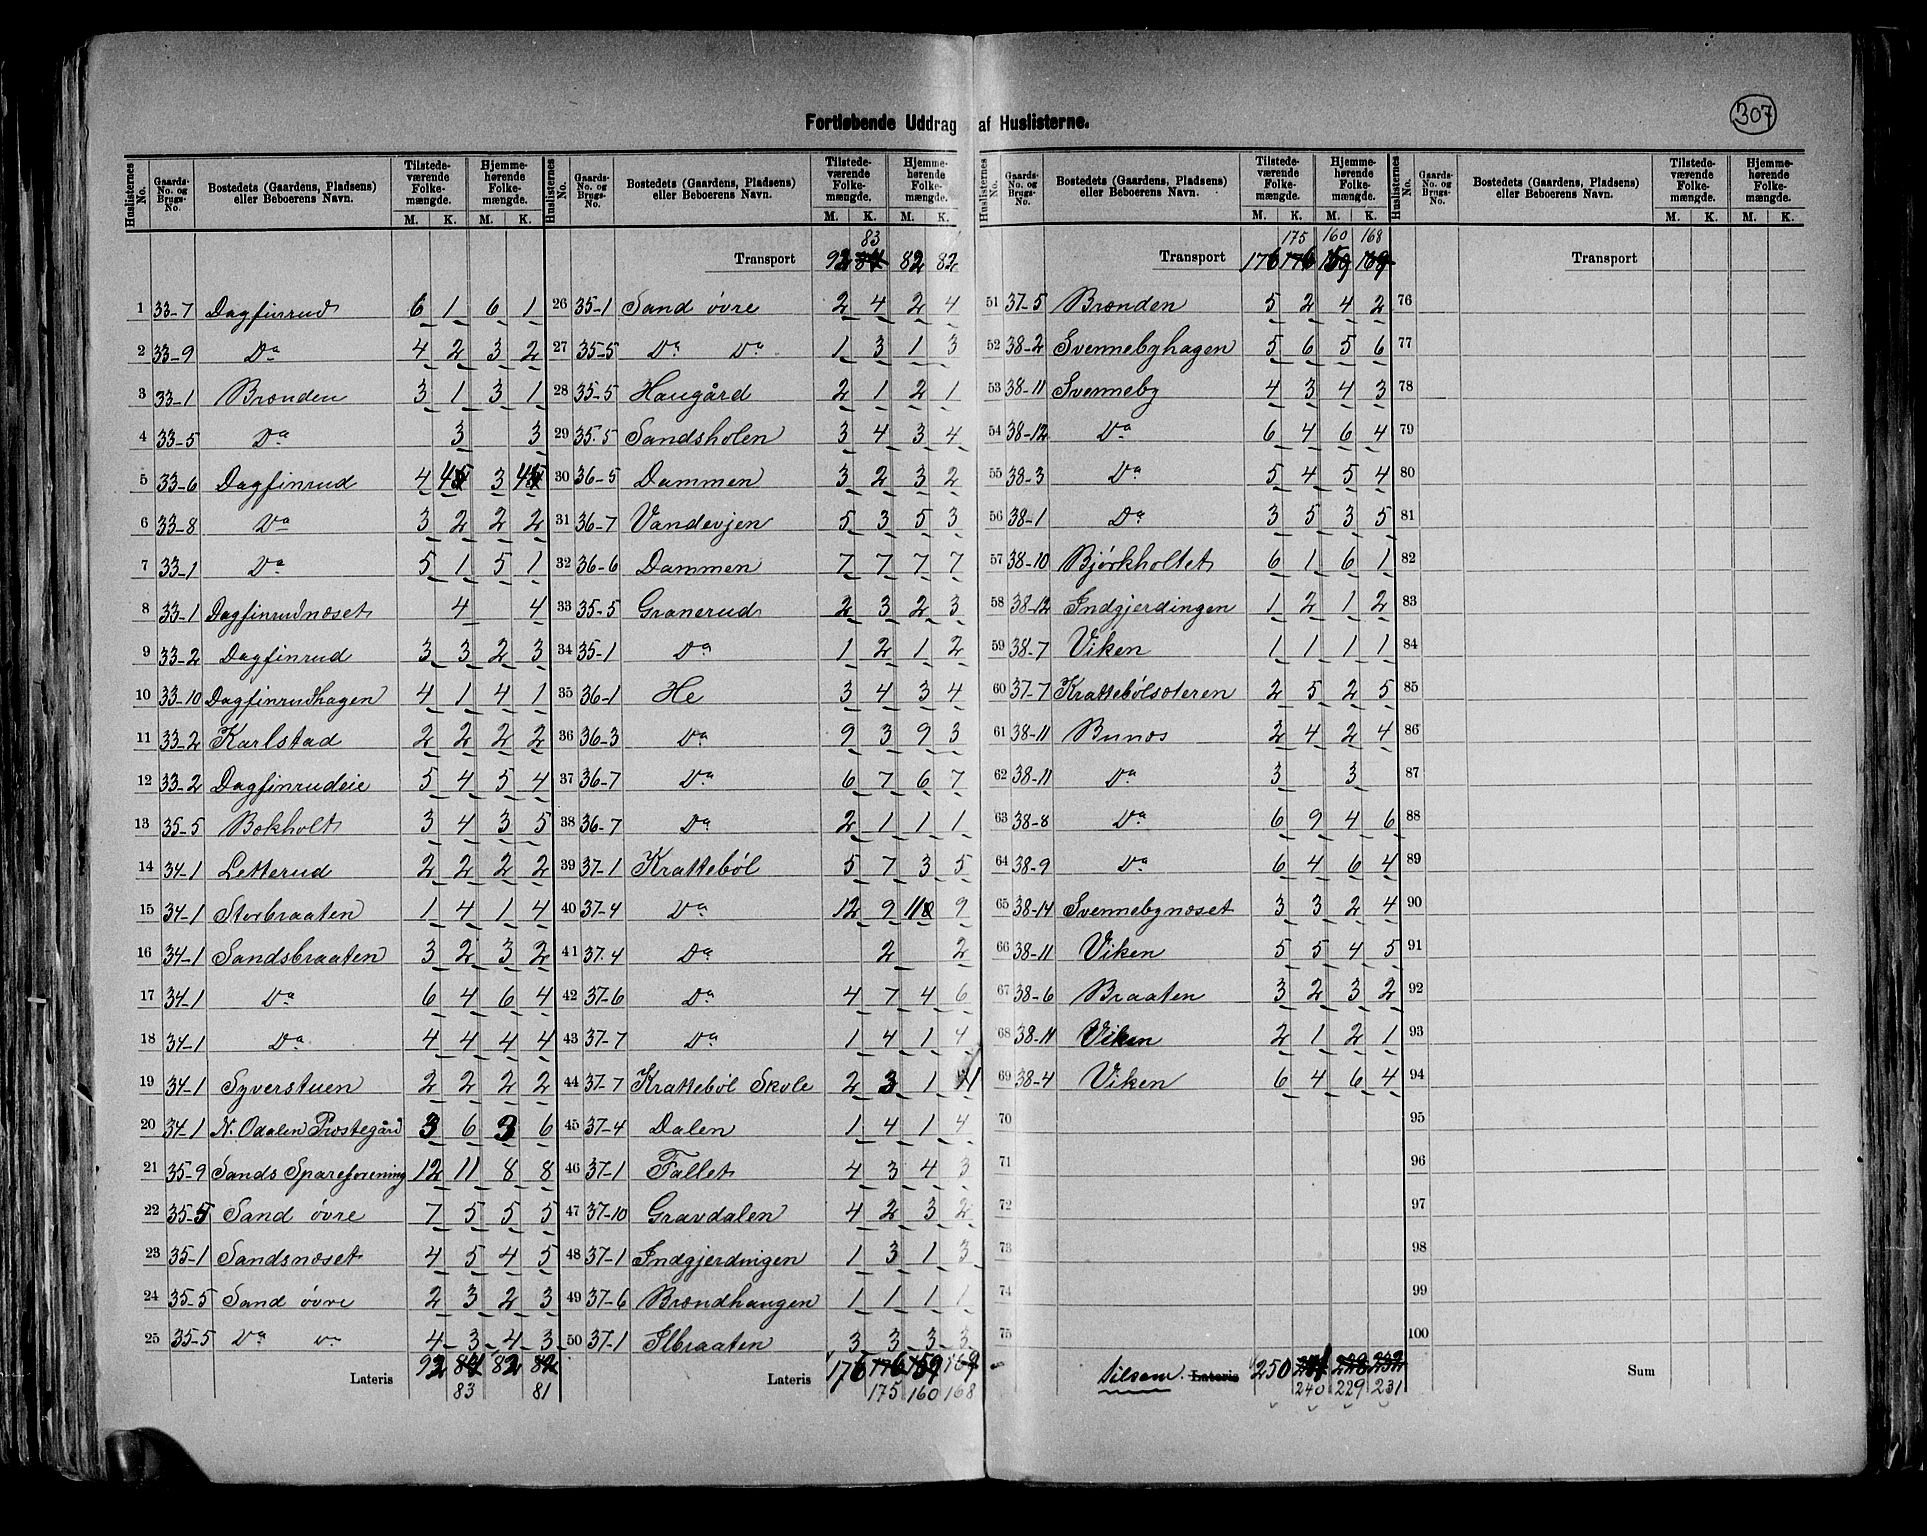 307
Fortløbende Uddrag af Huslisterne.
Huslisternes No. | Gaards-No. og Brugs-No. | Bostedets (Gaardens, Pladsens) eller Beboerens Navn. | Tilstedeværende Folkemængde. M. K. | Hjemmehørende Folkemængde. M. K.
1 33-7 Dagfinrud 6 1 6 1
2 33-9 Do 4 2 3 2
3 33-1 Brænden 3 1 3 1
4 33-5 Do 3 3
5 33-6 Dagfinrud 4 4 3 4
6 33-8 Do 3 2 2 2
7 33-1 Do 5 1 5 1
8 33-1 Dagfinrudnæset 4 4
9 33-2 Dagfinrud 3 3 2 3
10 33-10 Dagfinrudhagen 4 1 4 1
11 33-2 Karlstad 2 2 2 2
12 33-2 Dagfinrudeie 5 4 5 4
13 35-5 Bokholt 3 4 3 5
14 34-1 Letterud 2 2 2 2
15 34-1 Storbraaten 1 4 1 4
16 34-1 Sandsbraaten 3 2 3 2
17 34-1 Do 6 4 6 4
18 34-1 Do 4 4 4 4
19 34-1 Syverstuen 2 2 2 2
20 34-1 N. Odalen Præstegård 3 6 3 6
21 35-9 Sands Spareforening 12 11 8 8
22 35-5 Sand övre 7 5 5 5
23 35-1 Sandsnæset 4 5 4 5
24 35-5 Sand övre 2 3 2 3
25 35-5 Do do 4 3 4 3
Lateris 92 84 82 82
83 81
Huslisternes No. | Gaards-No. og Brugs-No. | Bostedets (Gaardens, Pladsens) eller Beboerens Navn. | Tilstedeværende Folkemængde. M. K. | Hjemmehørende Folkemængde. M. K.
83
Transport 92 84 82 82
26 35-1 Sand övre 2 4 2 4
27 35-5 Do Do 1 3 1 3
28 35-5 Haugård 2 1 2 1
29 35-5 Sandsholen 3 4 3 4
30 36-5 Dammen 3 2 3 2
31 36-7 Vandevjen 5 3 5 3
32 36-6 Dammen 7 7 7 7
33 35-5 Granerud 2 3 2 3
34 35-1 Do 1 2 1 2
35 36-1 He 3 4 3 4
36 36-3 Do 9 3 9 3
37 36-7 Do 6 7 6 7
38 36-7 Do 2 1 1 1
39 37-1 Krattebøl 5 7 3 5
40 37-4 Do 12 9 11 9
41 37-4 Do 2 2
42 37-6 Do 4 7 4 6
43 37-7 Do 1 4 1 4
44 37-7 Krattebøl Skole 2 3 1 1
45 37-4 Dalen 1 4 1 4
46 37-1 Fallet 4 3 4 3
47 37-10 Gravdalen 4 2 3 2
48 37-1 Indgjerdingen 1 3 1 3
49 37-6 Brændhaugen 1 1 1 1
50 37-1 Ilbraaten 3 3 3 3
Lateris 176 176 159 169
175 160 168
Huslisternes No. | Gaards-No. og Brugs-No. | Bostedets (Gaardens, Pladsens) eller Beboerens Navn. | Tilstedeværende Folkemængde. M. K. | Hjemmehørende Folkemængde. M. K.
175 160 168
Transport 176 176 159 169
51 37-5 Brænden 5 2 4 2
52 38-2 Svennebyhagen 5 6 5 6
53 38-11 Svenneby 4 3 4 3
54 38-12 Do 6 4 6 4
55 38-3 Do 5 4 5 4
56 38-1 Do 3 5 3 5
57 38-10 Bjørkholtet 6 1 6 1
58 38-12 Indgjerdingen 1 2 1 2
59 38-7 Viken 1 1 1 1
60 37-7 Krattebølsæteren 2 5 2 5
61 38-11 Bunæs 2 4 2 4
62 38-11 Do 3 3
63 38-8 Do 6 9 4 6
64 38-9 Do 6 4 6 4
65 38-14 Svennebynæset 3 3 2 4
66 38-11 Viken 5 5 4 5
67 38-6 Braaten 3 2 3 2
68 38-11 Viken 2 1 2 1
69 38-4 Viken 6 4 6 4
70
71
72
73
74
75
Tilsam. Lateris 250 241 228 232
240 229 231
Huslisternes No. | Gaards-No. og Brugs-No. | Bostedets (Gaardens, Pladsens) eller Beboerens Navn. | Tilstedeværende Folkemængde. M. K. | Hjemmehørende Folkemængde. M. K.
Transport
76
77
78
79
80
81
82
83
84
85
86
87
88
89
90
91
92
93
94
95
96
97
98
99
100
Sum